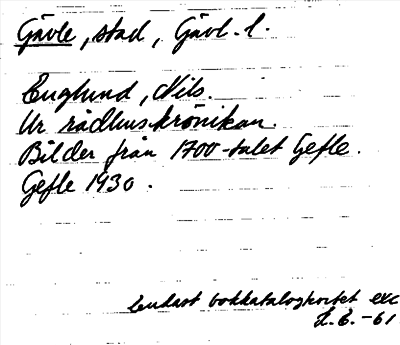 Gävle, stad, Gävl. l.
Englund, Nils.
Ur rådhuskrönikan.
Bilder från 1700-talet Gefle.
Gefle 1930.
Endast bokkatalogkortet exc
L. E. -61